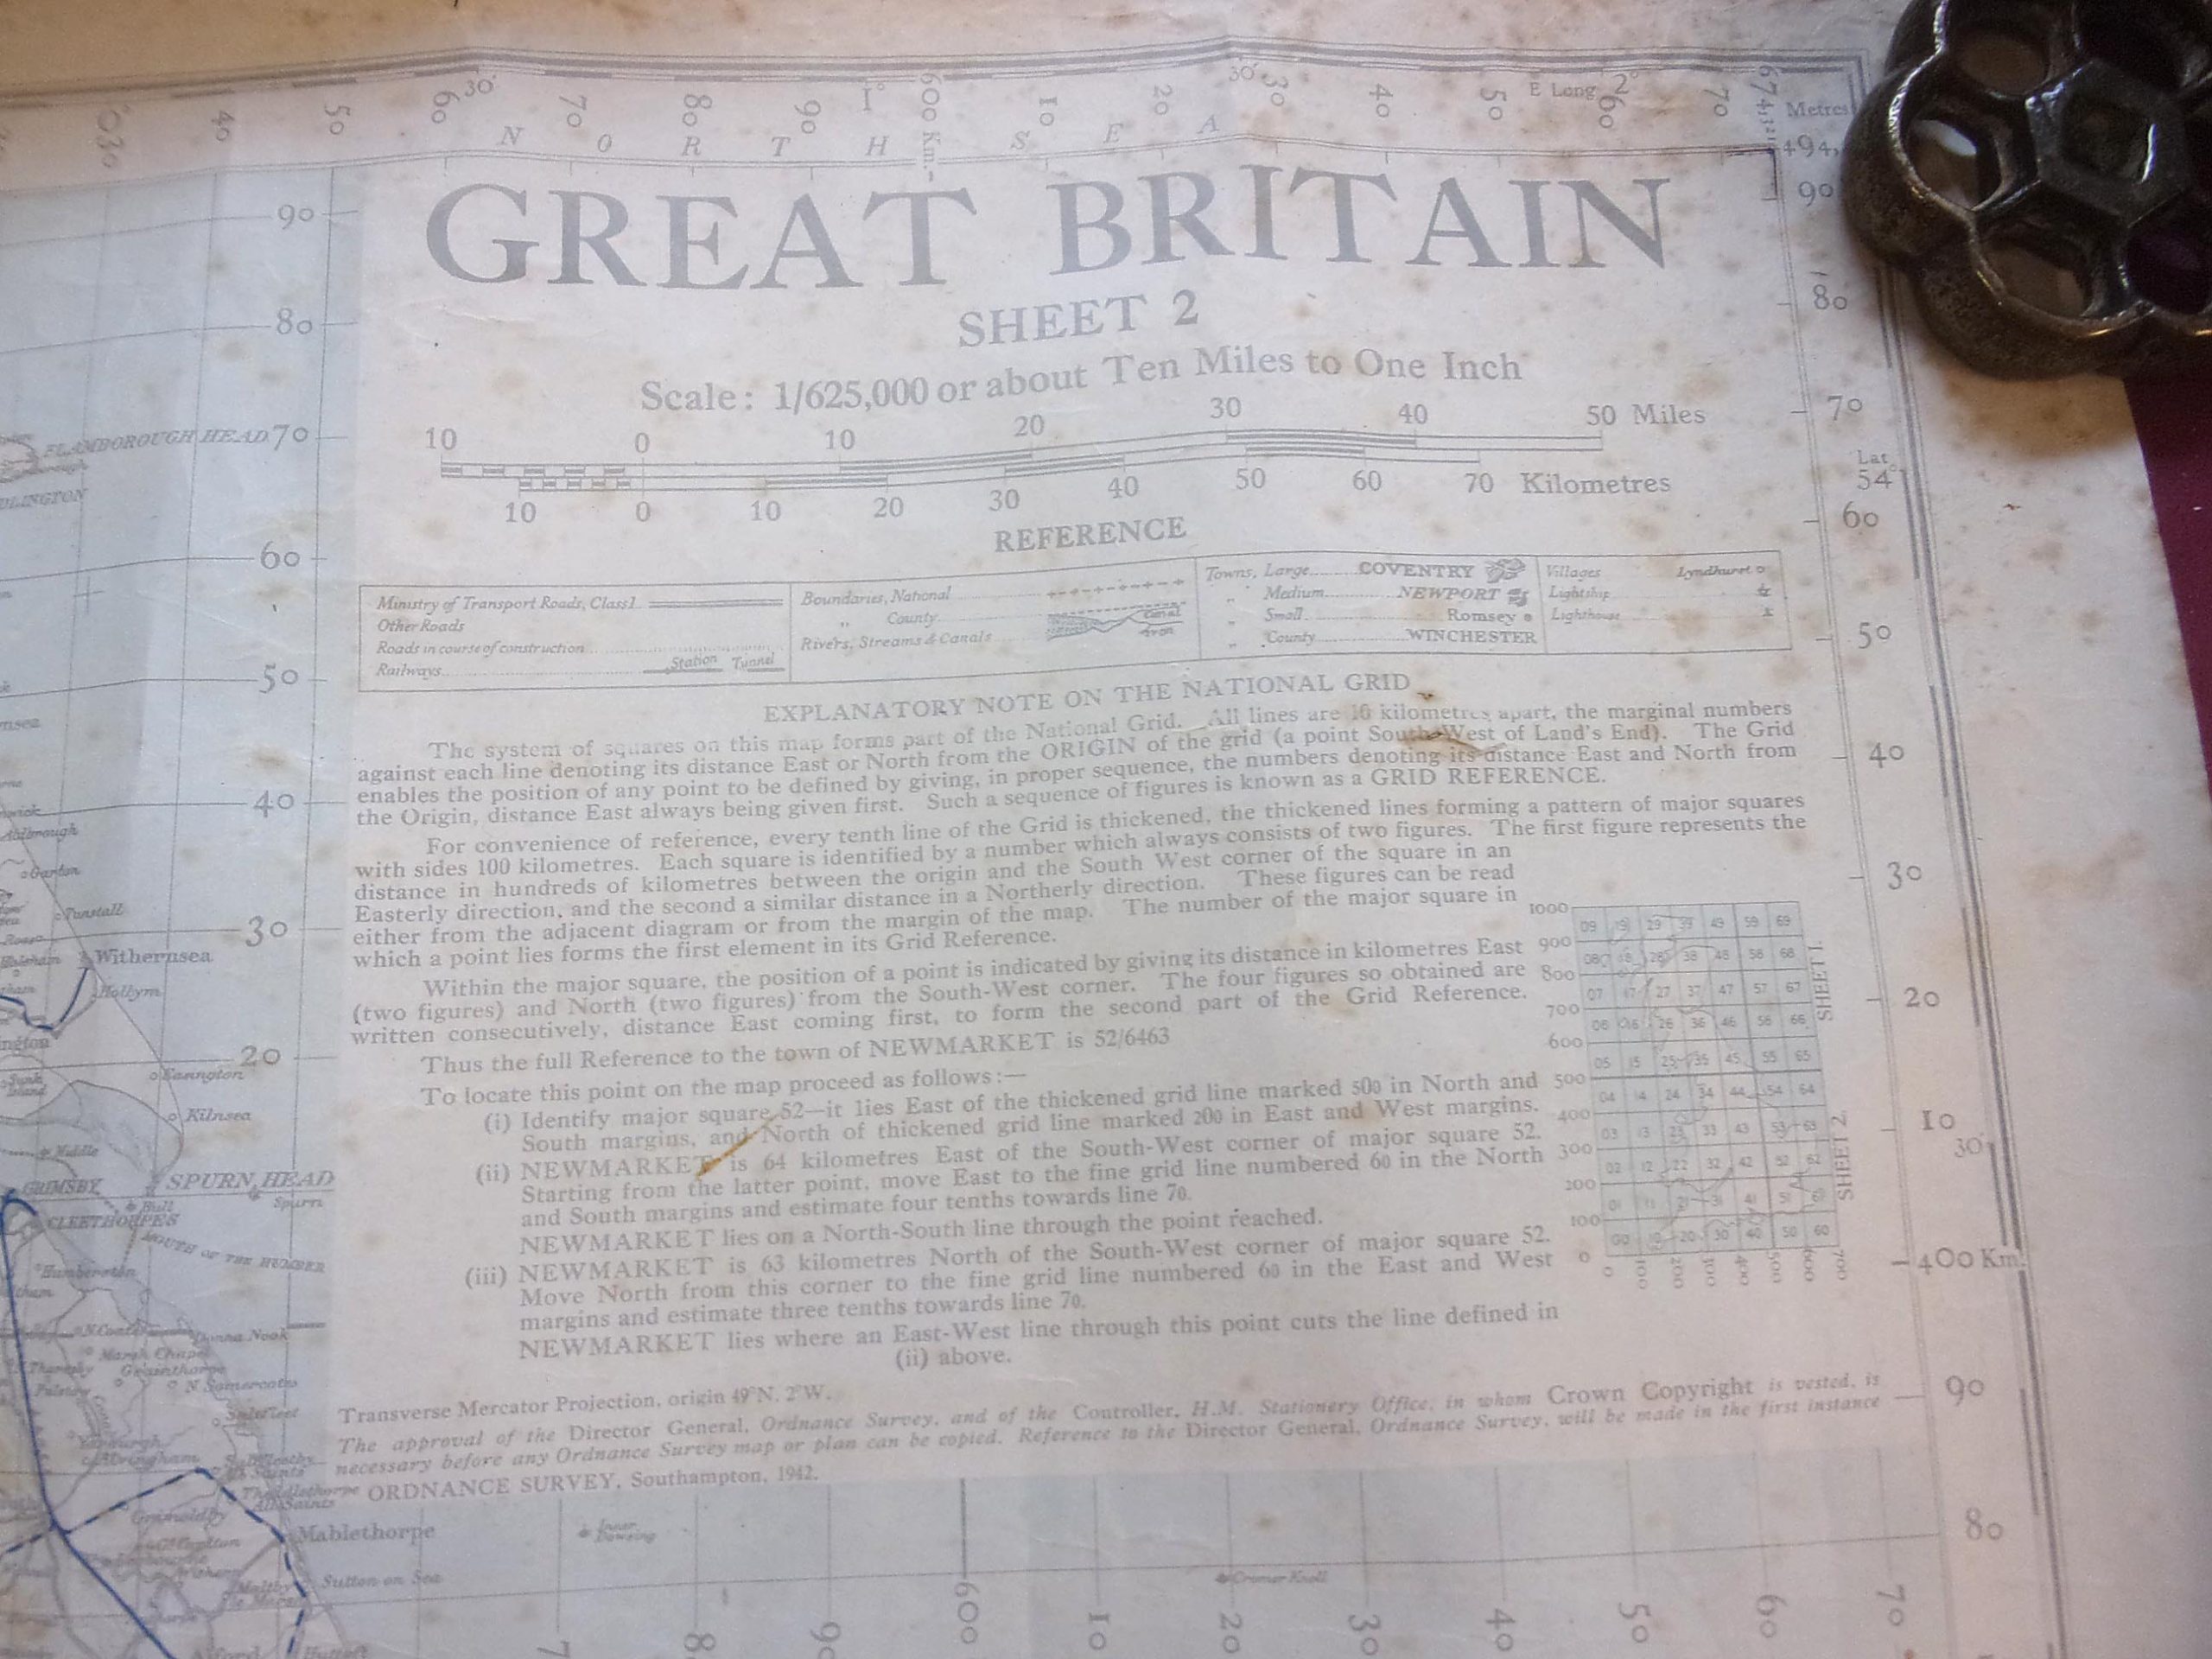 30' 30' E Long 2°
030 40 50 60 70 80 90 1° 600 Km. 10 20 30 40 50 60 70 Metres
NORTH SEA
494,
90 90
GREAT BRITAIN
80 80
SHEET 2
Scale: 1/625,000 or about Ten Miles to One Inch
70 70
10 0 10 20 30 40 50 Miles
10 0 10 20 30 40 50 60 70 Kilometres
FLAMBOROUGH HEAD
Lat
54°
60 60
REFERENCE
Ministry of Transport Roads, Class 1
Other Roads
Roads in course of construction
Railways Station Tunnel
Boundaries, National
" County
Rivers, Streams & Canals Canal Avon
Towns, Large COVENTRY
" Medium NEWPORT
" Small Romsey
" County WINCHESTER
Villages Lyndhurst
Lightship
Lighthouse
50 50
EXPLANATORY NOTE ON THE NATIONAL GRID
The system of squares on this map forms part of the National Grid. All lines are 10 kilometres apart, the marginal numbers
against each line denoting its distance East or North from the ORIGIN of the grid (a point South-West of Land's End). The Grid
enables the position of any point to be defined by giving, in proper sequence, the numbers denoting its distance East and North from
the Origin, distance East always being given first. Such a sequence of figures is known as a GRID REFERENCE.
For convenience of reference, every tenth line of the Grid is thickened, the thickened lines forming a pattern of major squares
with sides 100 kilometres. Each square is identified by a number which always consists of two figures. The first figure represents the
distance in hundreds of kilometres between the origin and the South West corner of the square in an
Easterly direction, and the second a similar distance in a Northerly direction. These figures can be read
either from the adjacent diagram or from the margin of the map. The number of the major square in
which a point lies forms the first element in its Grid Reference.
Within the major square, the position of a point is indicated by giving its distance in kilometres East
(two figures) and North (two figures) from the South-West corner. The four figures so obtained are
written consecutively, distance East coming first, to form the second part of the Grid Reference.
Thus the full Reference to the town of NEWMARKET is 52/6463
To locate this point on the map proceed as follows:—
(i) Identify major square 52—it lies East of the thickened grid line marked 500 in North and
South margins, and North of thickened grid line marked 200 in East and West margins.
(ii) NEWMARKET is 64 kilometres East of the South-West corner of major square 52.
Starting from the latter point, move East to the fine grid line numbered 60 in the North
and South margins and estimate four tenths towards line 70.
NEWMARKET lies on a North-South line through the point reached.
(iii) NEWMARKET is 63 kilometres North of the South-West corner of major square 52.
Move North from this corner to the fine grid line numbered 60 in the East and West
margins and estimate three tenths towards line 70.
NEWMARKET lies where an East-West line through this point cuts the line defined in
(ii) above.
1000 09 19 29 39 49 59 69
900 08 18 28 38 48 58 68
800 07 17 27 37 47 57 67
700 06 16 26 36 46 56 66
600 05 15 25 35 45 55 65
500 04 14 24 34 44 54 64
400 03 13 23 33 43 53 63
300 02 12 22 32 42 52 62
200 01 11 21 31 41 51
100 00 10 20 30 40 50 60
0 0 100 200 300 400 500 600 700
SHEET 1.
SHEET 2.
Transverse Mercator Projection, origin 49°N. 2°W.
The approval of the Director General, Ordnance Survey, and of the Controller, H.M. Stationery Office, in whom Crown Copyright is vested, is
necessary before any Ordnance Survey map or plan can be copied. Reference to the Director General, Ordnance Survey, will be made in the first instance
ORDNANCE SURVEY, Southampton, 1942.
40 40
30 30
20 20
10
30'
400 Km.
90
80
Garton
Tunstall
Withernsea
Hollym
Easington
Kilnsea
SPURN HEAD
Spurn
Bull
GRIMSBY
CLEETHORPES
MOUTH OF THE HUMBER
Humberston
Donna Nook
Marsh Chapel
Grainthorpe
N Somercotes
Saltfleet
Theddlethorpe
All Saints
Grimoldby
Mablethorpe
Inner Dowsing
Sutton on Sea
Cromer Knoll
600 10 20 30 40 50 60 70